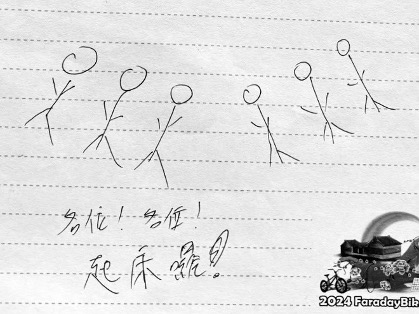 各位！各位！
起床囉！
2024 FaradayBik